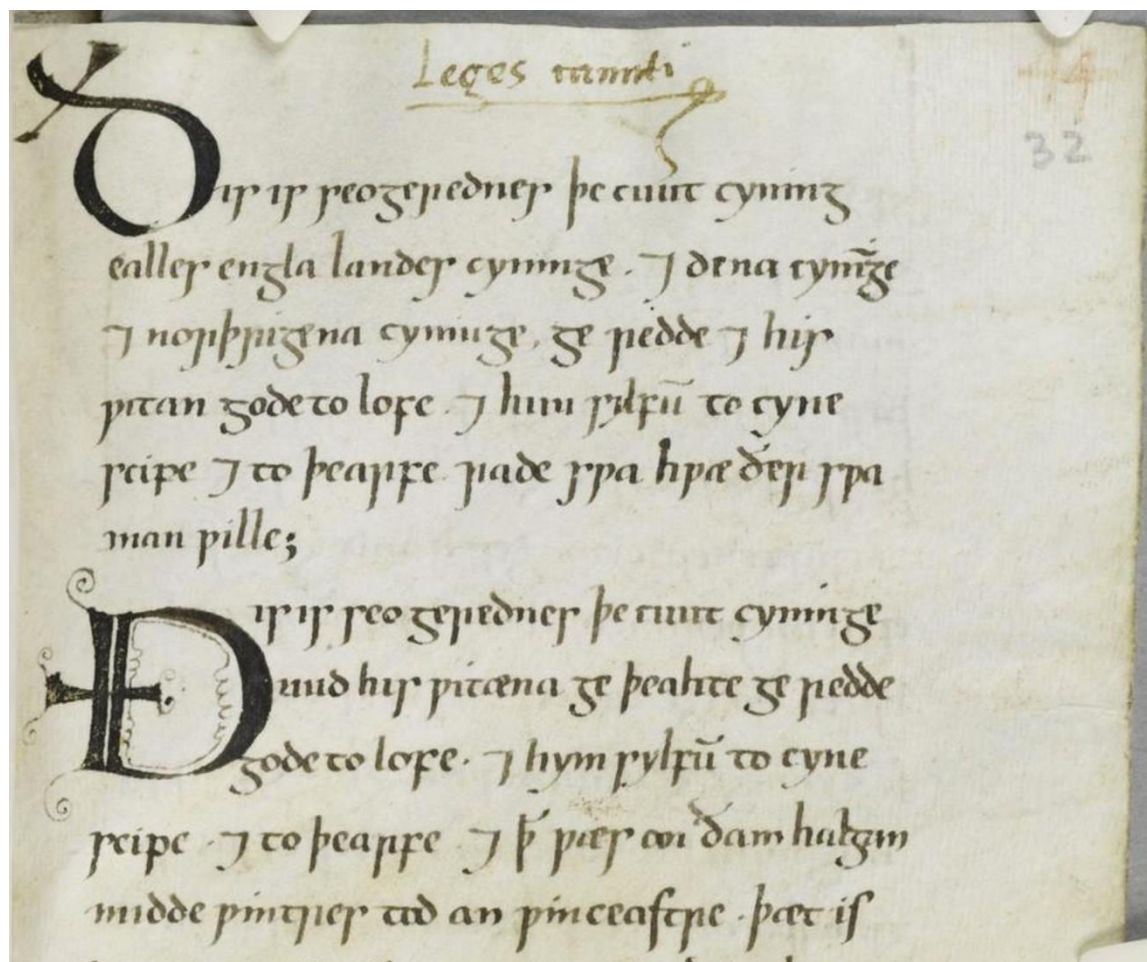 Leges canuti
32
Ðis is seo gerednes þe cnut cyning
ealles engla landes cyninge . ⁊ dena cynı̅ge
⁊ norþrigena cyninge, ge redde ⁊ his
ƿitan gode to lofe . ⁊ him sylfū to cyne
scipe ⁊ to þearfe . rade sƿa hƿæðer sƿa
man ƿille;
Ðis is seo gerednes þe cnut cyninge
mid his ƿitæna ge þeahte ge redde
gode to lofe . ⁊ hym sylfū to cyne
scipe . ⁊ to þearfe . ⁊ ꝥ ƿæs on ðam halgum
midde ƿintres tid on ƿinceastre . þæt is